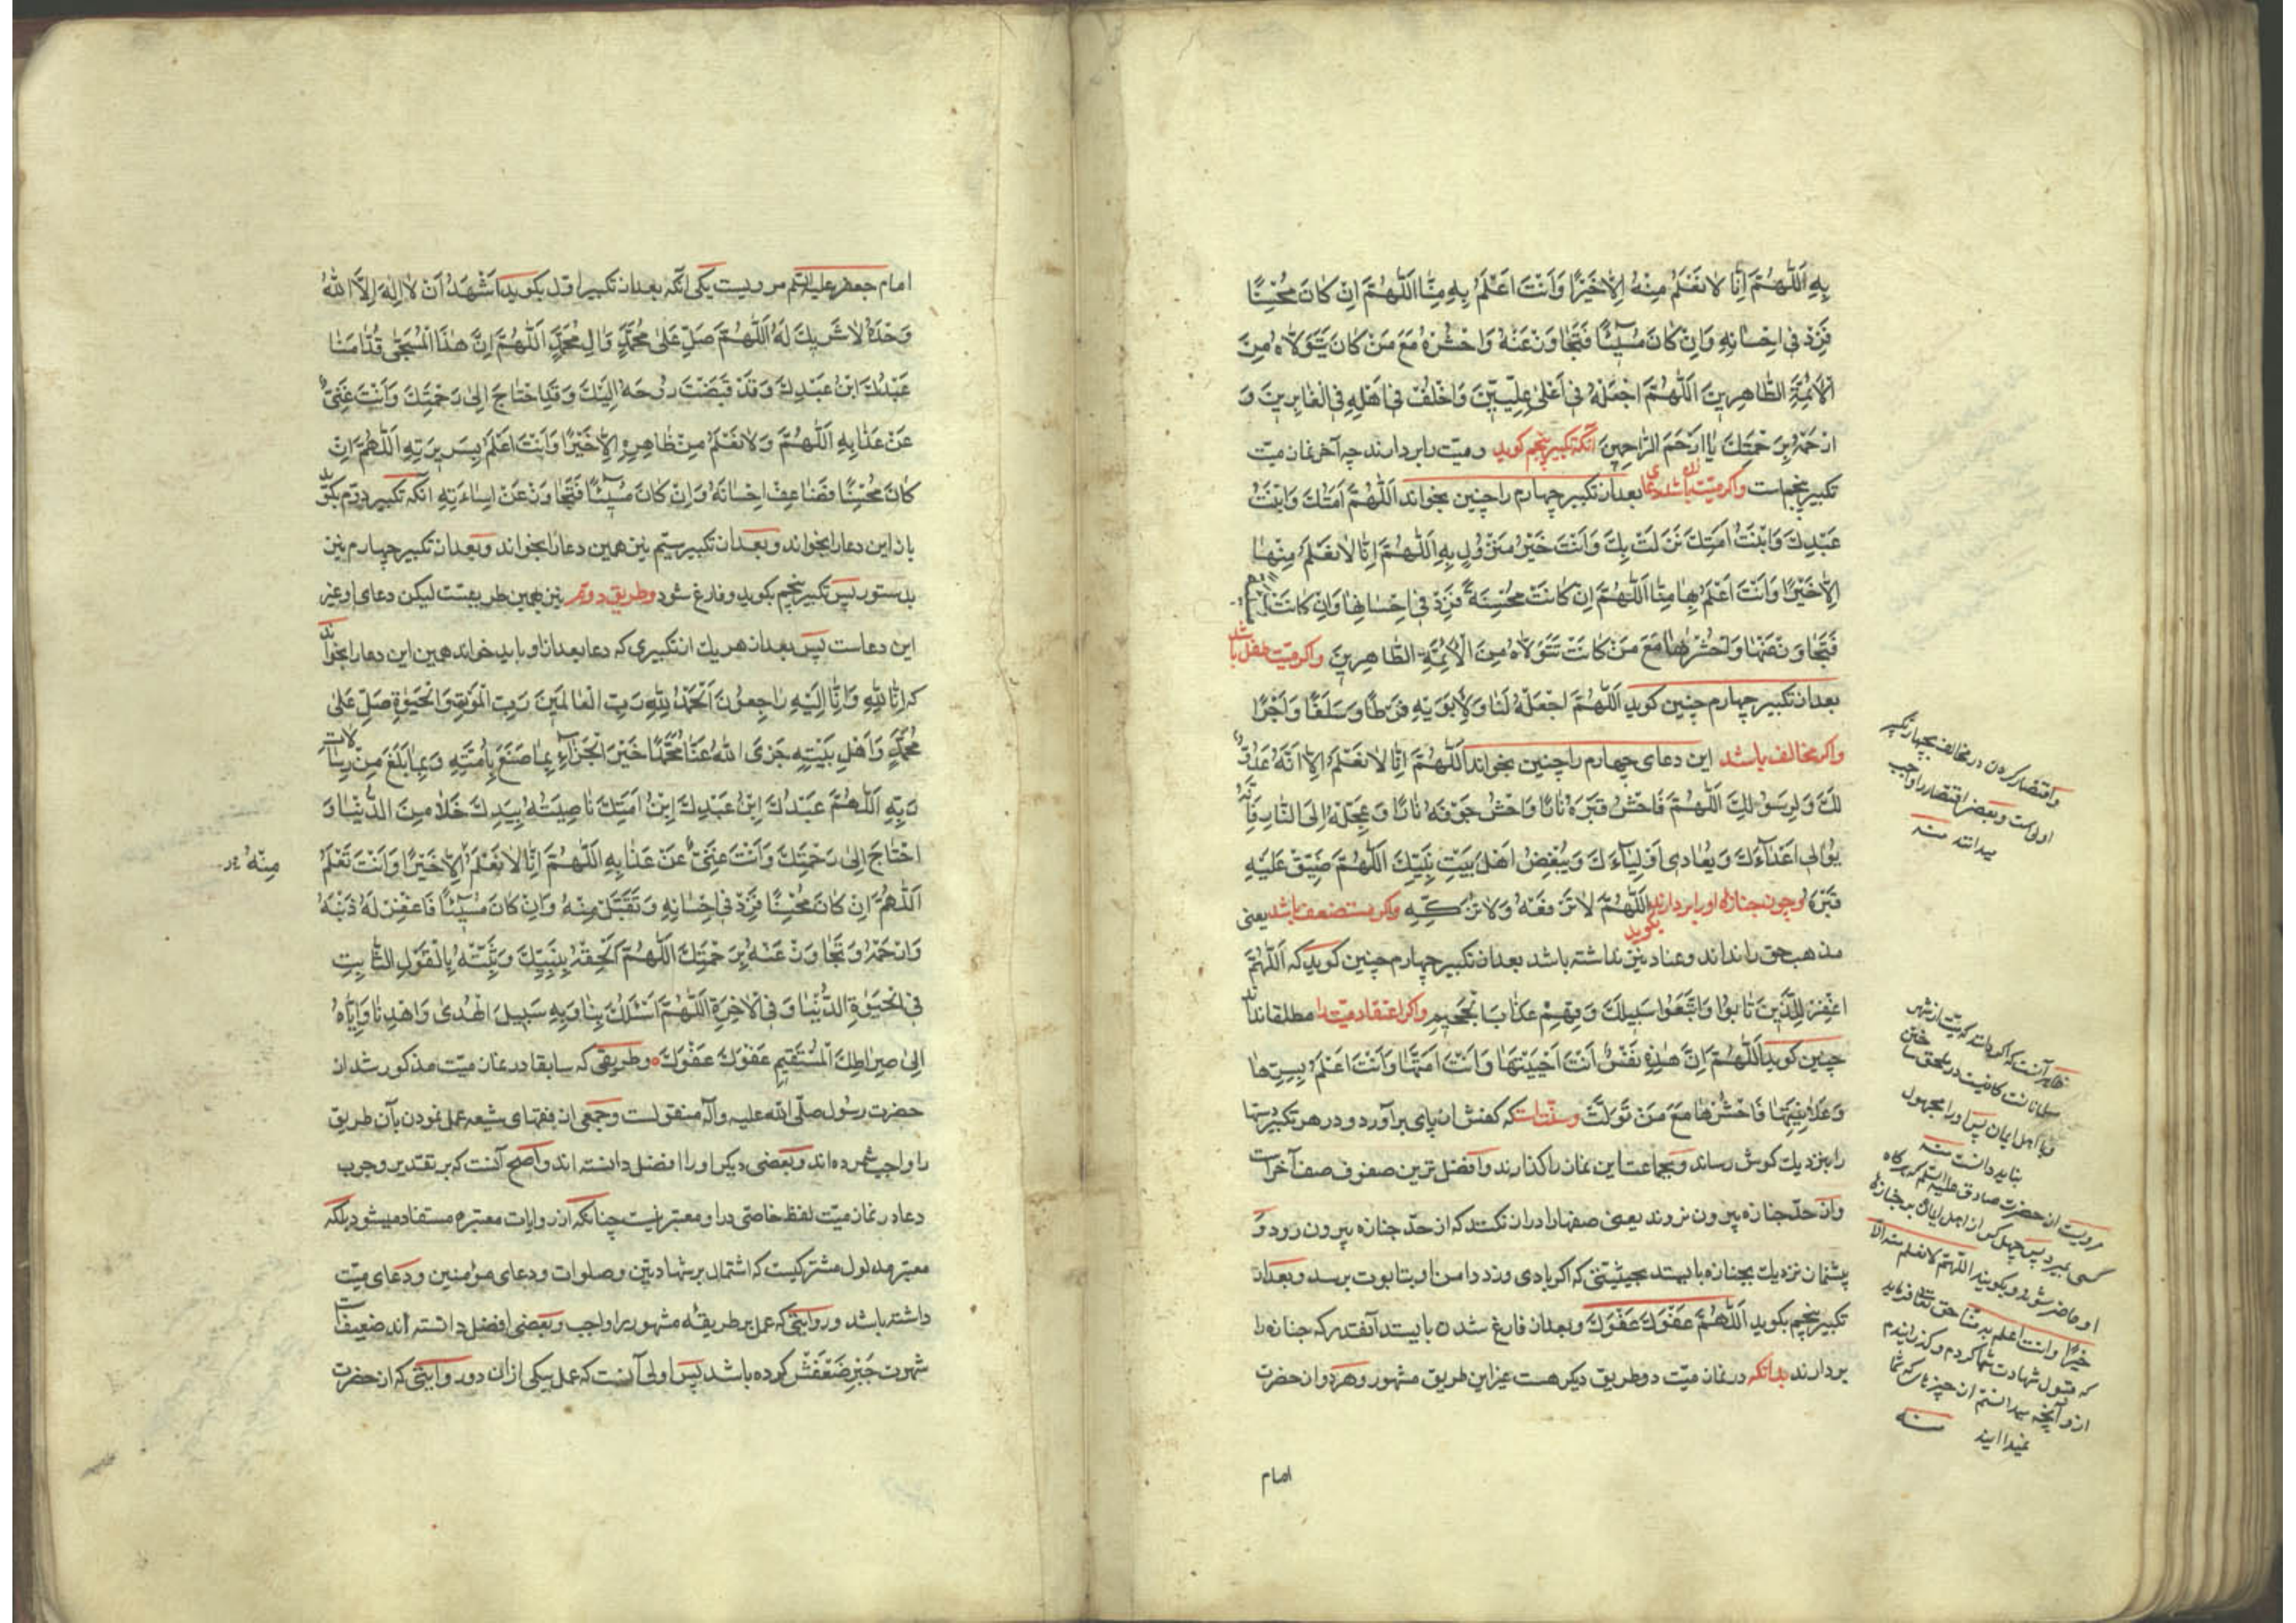 بِهِ اَللّٰهُمَّ اِنّا لانَعْلَمُ مِنْهُ اِلّا خَیْرًا وَاَنْتَ اَعْلَمُ بِهِ مِنَّا اَللّٰهُمَّ اِنْ کانَ مُحْسِنًا
فَزِدْ فی اِحْسانِهِ وَاِنْ کانَ مُسیئًا فَتَجاوَزْ عَنْهُ وَاحْشُرْهُ مَعَ مَنْ کانَ یَتَوَلّاهُ مِنَ
الْاَئِمَّةِ الطّاهِرینَ اَللّٰهُمَّ اجْعَلْهُ فی اَعْلیٰ عِلِّیّینَ وَاخْلُفْ فی اَهْلِهِ فِی الْغابِرینَ وَ
ارْحَمْهُ بِرَحْمَتِكَ یا اَرْحَمَ الرّاحِمینَ آنکه تکبیر پنجم کوید ومیّت را بردارند چه آخر نماز میّت
تکبیر پنجم است واکر میّت زن باشد دعای بعد از تکبیر چهارم را چنین بخواند اَللّٰهُمَّ اَمَتُكَ وَابْنَتُ
عَبْدِكَ وَابْنَتُ اَمَتِكَ نَزَلَتْ بِكَ وَاَنْتَ خَیْرُ مَنْزُولٍ بِهِ اَللّٰهُمَّ اِنّا لانَعْلَمُ مِنْها
اِلّا خَیْرًا وَاَنْتَ اَعْلَمُ بِها مِنّا اَللّٰهُمَّ اِنْ کانَتْ مُحْسِنَةً فَزِدْ فی اِحْسانِها وَاِنْ کانَتْ
فَتَجاوَزْ عَنْها وَاحْشُرْها مَعَ مَنْ کانَتْ تَتَوَلّاهُ مِنَ الْاَئِمَّةِ الطّاهِرینَ واکر میّت طفل باشد
بعد از تکبیر چهارم چنین کوید اَللّٰهُمَّ اجْعَلْهُ لَنا وَلِاَبَوَیْهِ فَرَطًا وَسَلَفًا وَاَجْرًا
واکر مخالف باشد این دعای چهارم را چنین بخواند اَللّٰهُمَّ اِنّا لانَعْلَمُ اِلّا اَنَّهُ عَدُوٌّ
لَكَ وَلِرَسُولِكَ اَللّٰهُمَّ فَاحْشُ قَبْرَهُ نارًا وَاحْشُ جَوْفَهُ نارًا وَعَجِّلْهُ اِلَی النّارِ فَاِنَّهُ
یُوالی اَعْداءَكَ وَیُعادی اَوْلِیاءَكَ وَیُبْغِضُ اَهْلَ بَیْتِ نَبِیِّكَ اَللّٰهُمَّ ضَیِّقْ عَلَیْهِ
قَبْرَهُ وچون جنازه او را بردارند بکوید اَللّٰهُمَّ لاتَرْفَعْهُ وَلاتُزَکِّهِ واکر مستضعف باشد یعنی
مذهب حق را نداند وعناد نیز نداشته باشد بعد از تکبیر چهارم چنین کوید که اَللّٰهُمَّ
اغْفِرْ لِلَّذینَ تابُوا وَاتَّبَعُوا سَبیلَكَ وَقِهِمْ عَذابَ الْجَحیمِ واکر اعتقاد میّت را مطلقا نداند
چنین کوید اَللّٰهُمَّ اِنَّ هٰذِهِ نَفْسٌ اَنْتَ اَحْیَیْتَها وَاَنْتَ اَمَتَّها وَاَنْتَ اَعْلَمُ بِسِرِّها
وَعَلانِیَتِها فَاحْشُرْها مَعَ مَنْ تَوَلَّتْ وسنّت است که کفش از پای برآورد ودر هر تکبیر دستها
را بنزدیك کوش رساند وبجماعت این نماز را کذارند وافضل ترین صفوف صف آخر است
واز حدّ جنازه بیرون نروند یعنی صفها را دراز نکنند که از حدّ جنازه بیرون رود و
پیشنماز نزدیك بجنازه بایستد بحیثیتی که اکر بادی وزد دامن او بتابوت برسد وبعد از
تکبیر پنجم بکوید اَللّٰهُمَّ عَفْوَكَ عَفْوَكَ وبعد از فارغ شدن بایستد آنقدر که جنازه را
بردارند بدانکه در نماز میّت دو طریق دیکر هست غیر این طریق مشهور وهر دو از حضرت
امام
واقتصار کردن در مخالف بچهار تکبیر
اولی است وبعضی اقتصار را واجب
میدانند منه
ظاهر آنست که اکر دانند که میّت از شهر
مسلمانان است کافیست در ملحق ساختن
وبا اهل ایمان پس او را مجهول
نباید دانست منه
مرویست از حضرت صادق علیه السلم که هر کاه
کسی بمیرد پس چهل کس از اهل ایمان بر جنازه
او حاضر شوند وبکویند اللّهمّ لانعلم منه الّا
خیرًا وانت اعلم به منّا حق تعالی فرماید
که قبول شهادت شما کردم وکذرانیدم
از او آنچه میدانستم از چیزهایی که شما
نمیدانید منه
امام جعفر علیه السّلم مرویست یکی آنکه بعد از تکبیر اوّل بکوید اَشْهَدُ اَنْ لا اِلٰهَ اِلّا اللّٰهُ
وَحْدَهُ لاشَریكَ لَهُ اَللّٰهُمَّ صَلِّ عَلیٰ مُحَمَّدٍ وَآلِ مُحَمَّدٍ اَللّٰهُمَّ اِنَّ هٰذَا الْمُسَجّیٰ قُدّامَنا
عَبْدُكَ ابْنُ عَبْدِكَ وَقَدْ قَبَضْتَ رُوحَهُ اِلَیْكَ وَقَدِ احْتاجَ اِلیٰ رَحْمَتِكَ وَاَنْتَ غَنِیٌّ
عَنْ عَذابِهِ اَللّٰهُمَّ وَلانَعْلَمُ مِنْ ظاهِرِهِ اِلّا خَیْرًا وَاَنْتَ اَعْلَمُ بِسَریرَتِهِ اَللّٰهُمَّ اِنْ
کانَ مُحْسِنًا فَضاعِفْ اِحْسانَهُ وَاِنْ کانَ مُسیئًا فَتَجاوَزْ عَنْ اِساءَتِهِ آنکه تکبیر دوّم بکوید
باز این دعا را بخواند وبعد از تکبیر سیّم نیز همین دعا را بخواند وبعد از تکبیر چهارم نیز
بدستور پس تکبیر پنجم بکوید وفارغ شود وطریق دوّم نیز بهمین طریقست لیکن دعای او غیر
این دعاست پس بعد از هر یك از تکبیری که دعا بعد از او باید خواند همین این دعا را بخواند
که اِنّا لِلّٰهِ وَاِنّا اِلَیْهِ راجِعُونَ اَلْحَمْدُ لِلّٰهِ رَبِّ الْعالَمینَ رَبِّ الْمَوْتِ وَالْحَیٰوةِ صَلِّ عَلیٰ
مُحَمَّدٍ وَاَهْلِ بَیْتِهِ جَزَی اللّٰهُ عَنّا مُحَمَّدًا خَیْرَ الْجَزاءِ بِما صَنَعَ بِاُمَّتِهِ وَبِما بَلَّغَ مِنْ رِسالاتِ
رَبِّهِ اَللّٰهُمَّ عَبْدُكَ اِبْنُ عَبْدِكَ اِبْنُ اَمَتِكَ ناصِیَتُهُ بِیَدِكَ خَلا مِنَ الدُّنْیا وَ
احْتاجَ اِلیٰ رَحْمَتِكَ وَاَنْتَ غَنِیٌّ عَنْ عَذابِهِ اَللّٰهُمَّ اِنّا لانَعْلَمُ اِلّا خَیْرًا وَاَنْتَ تَعْلَمُ
مِنْهُ
اَللّٰهُمَّ اِنْ کانَ مُحْسِنًا فَزِدْ فی اِحْسانِهِ وَتَقَبَّلْ مِنْهُ وَاِنْ کانَ مُسیئًا فَاغْفِرْ لَهُ ذَنْبَهُ
وَارْحَمْهُ وَتَجاوَزْ عَنْهُ بِرَحْمَتِكَ اَللّٰهُمَّ اَلْحِقْهُ بِنَبِیِّكَ وَثَبِّتْهُ بِالْقَوْلِ الثّابِتِ
فِی الْحَیٰوةِ الدُّنْیا وَفِی الْآخِرَةِ اَللّٰهُمَّ اَسْئَلُكَ بِنا وَبِهِ سَبیلَ الْهُدیٰ وَاهْدِنا وَاِیّاهُ
اِلیٰ صِراطِكَ الْمُسْتَقیمِ عَفْوَكَ عَفْوَكَ وطریقی که سابقا در نماز میّت مذکور شد از
حضرت رسول صلّی اللّه علیه وآله منقولست وجمعی از فقهای شیعه عمل نمودن بآن طریق
را واجب شمرده اند وبعضی دیکر او را افضل دانسته اند واصح آنست که بر تقدیر وجوب
دعا در نماز میّت لفظ خاصّی در او معتبر نیست چنانکه از روایات معتبره مستفاد میشود بلکه
معتبر مدلول مشترکیست که اشتمال بر شهادتین وصلوات ودعای مؤمنین ودعای میّت
داشته باشد وروایتی که عمل بر طریقه مشهور را واجب وبعضی افضل دانسته اند ضعیف است
شهرت جَبْرِ ضَعْفَش کرده باشد پس اولی آنست که عمل بیکی از ان دو روایتی که از حضرت